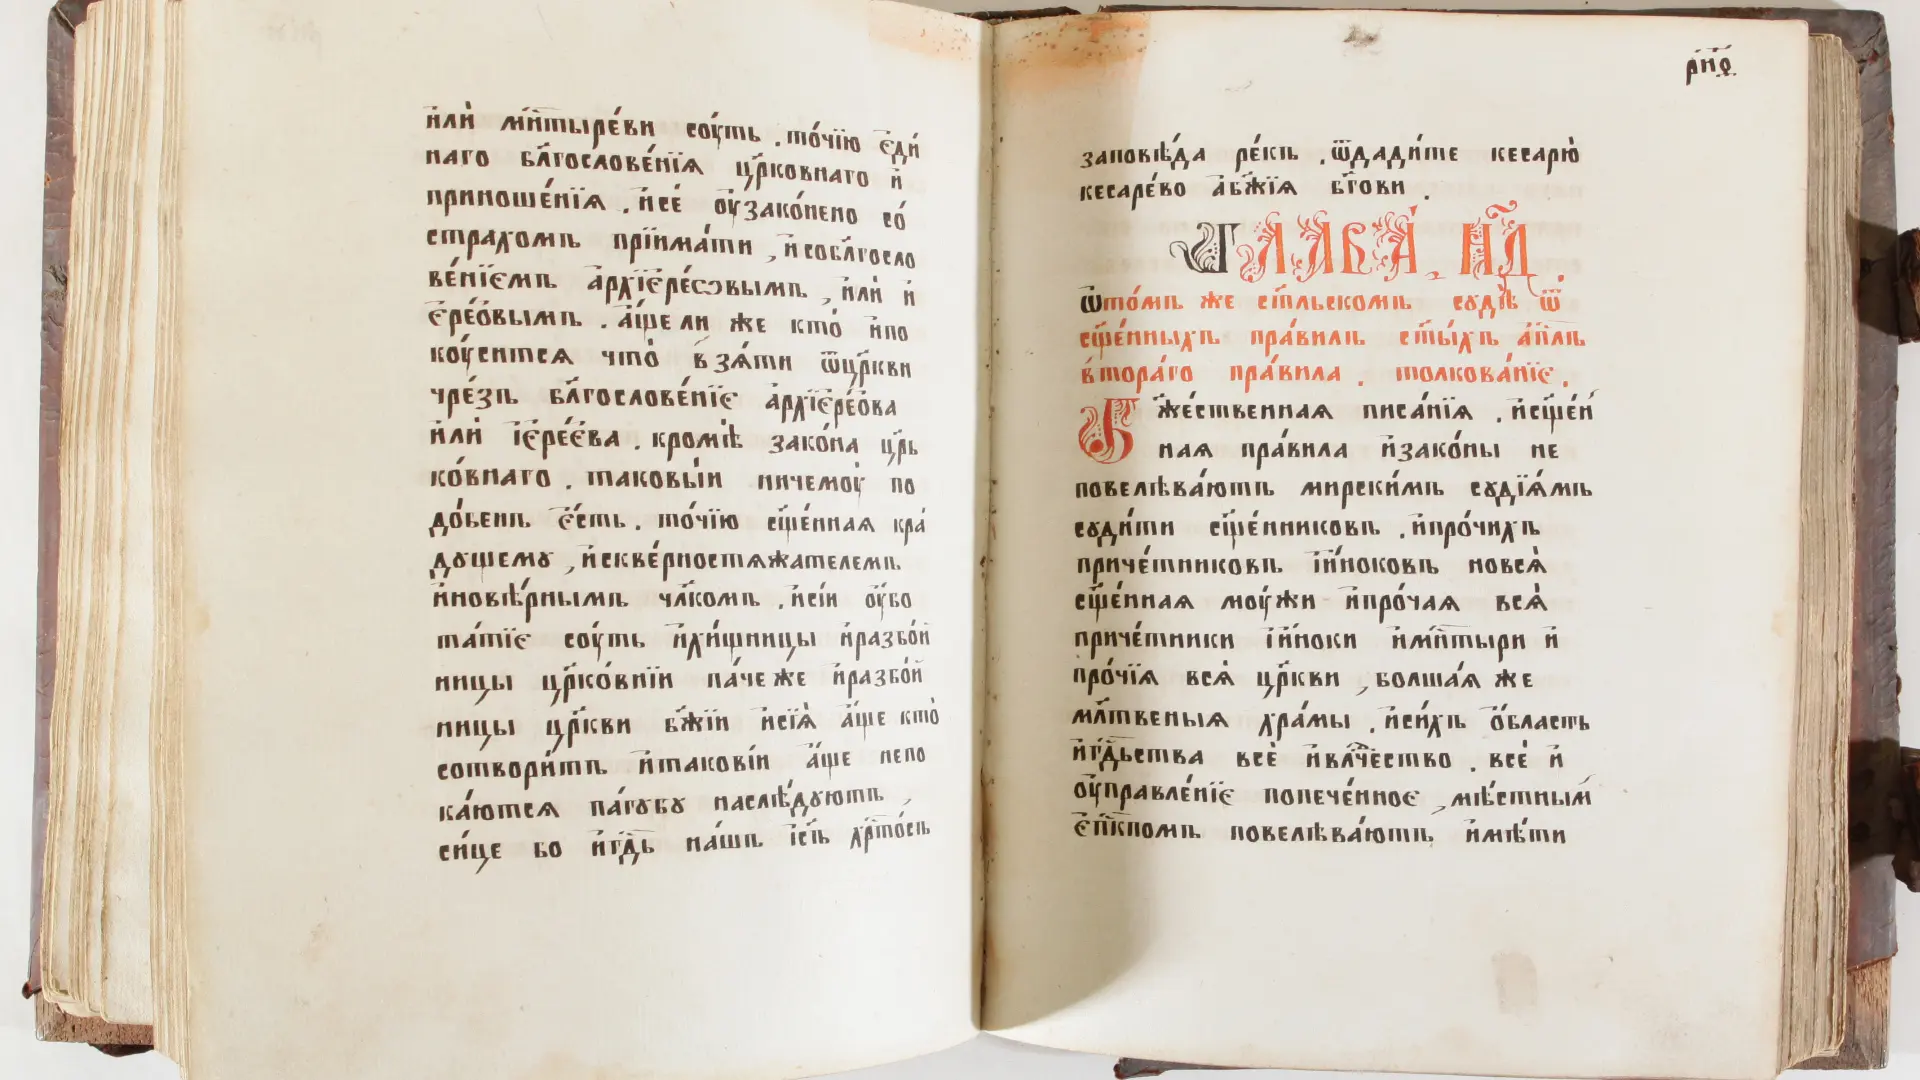 и҆лѝ мн҃тыре́ви сꙋ́ть . то́чїю є҆ди́
наго бл҃гослове́нїѧ цр҃ковнаго и҆
приноше́нїѧ . и҆сѐ ᲂу҆зако́нено со́
страхомъ прїима́ти , и҆собл҃госло
ве́нїємъ а҆рхїере́ѡвымъ , и҆лѝ и҆
єре́ѡвымъ . а҆́ще ли же кто̀ и҆по
кꙋ́ситсѧ что̀ в̾зѧ́ти ѿцр҃кви
чре́зъ бл҃гослове́нїє а҆рхїєре́ѡва
и҆лѝ і҆єре́єва . кромѣ̀ зако́на цр҃ь
ко́внаго . таковы́и ничемꙋ̀ по
до́бенъ є҆́сть . то́чїю сщ҃е́нная кра́
дꙋщемꙋ , и҆скве́рностѧжателемъ
и҆новѣ́рнымъ чл҃комъ . и҆сі́и ᲂу҆бо
та́тїє сꙋ́ть и҆хи́щницы и҆разбо́й
ницы цр҃ко́внїи па́че же и҆разбо́й
ницы цр҃кви бж҃їи и҆сїѧ̀ а҆́ще кто̀
сотвори́тъ и҆такові́и а҆́ще непо
ка́ютсѧ па́гꙋбꙋ наслѣ́дꙋютъ ,
си́це бо и҆гд҃ь на́шъ і҆с҃ъ хрⷭ҇то́съ
рн҃ѳ
заповѣ́да ре́къ . ѿдади́те кесарю̀
кесаре́во а҆бж҃їѧ бг҃ови .
Глава̀ . н҃д .
ѡ҆то́мъ же ст҃льскомъ сꙋдѣ̀ ѿ
сщ҃е́нныхъ пра́вилъ ст҃ы́хъ а҆пл҃ъ
вто́раго пра́вила . толкова́нїє .
Бж҃е́ственная писа́нїѧ . и҆сщ҃е́н
ная пра́вила и҆зако́ны не
повелѣва́ютъ мирскимъ сꙋдїѧ́мъ
сꙋди́ти сщ҃е́нниковъ . и҆про́чихъ
приче́тниковъ и҆і҆́ноковъ новсѧ̀
сщ҃е́нная мꙋ́жи и҆про́чая всѧ̀
приче́тники и҆і҆́ноки и҆мн҃тыри и҆
про́чїѧ всѧ̀ цр҃кви , болша́я же
мл҃твеныя хра́мы . и҆си́хъ ѡ҆́бласть
и҆гд҃ьства всѐ и҆влⷣчество . всѐ и҆
ᲂу҆правле́нїє попече́нноє , мѣ́стным
є҆пⷭ҇кпомъ повелѣва́ютъ и҆мѣ́ти